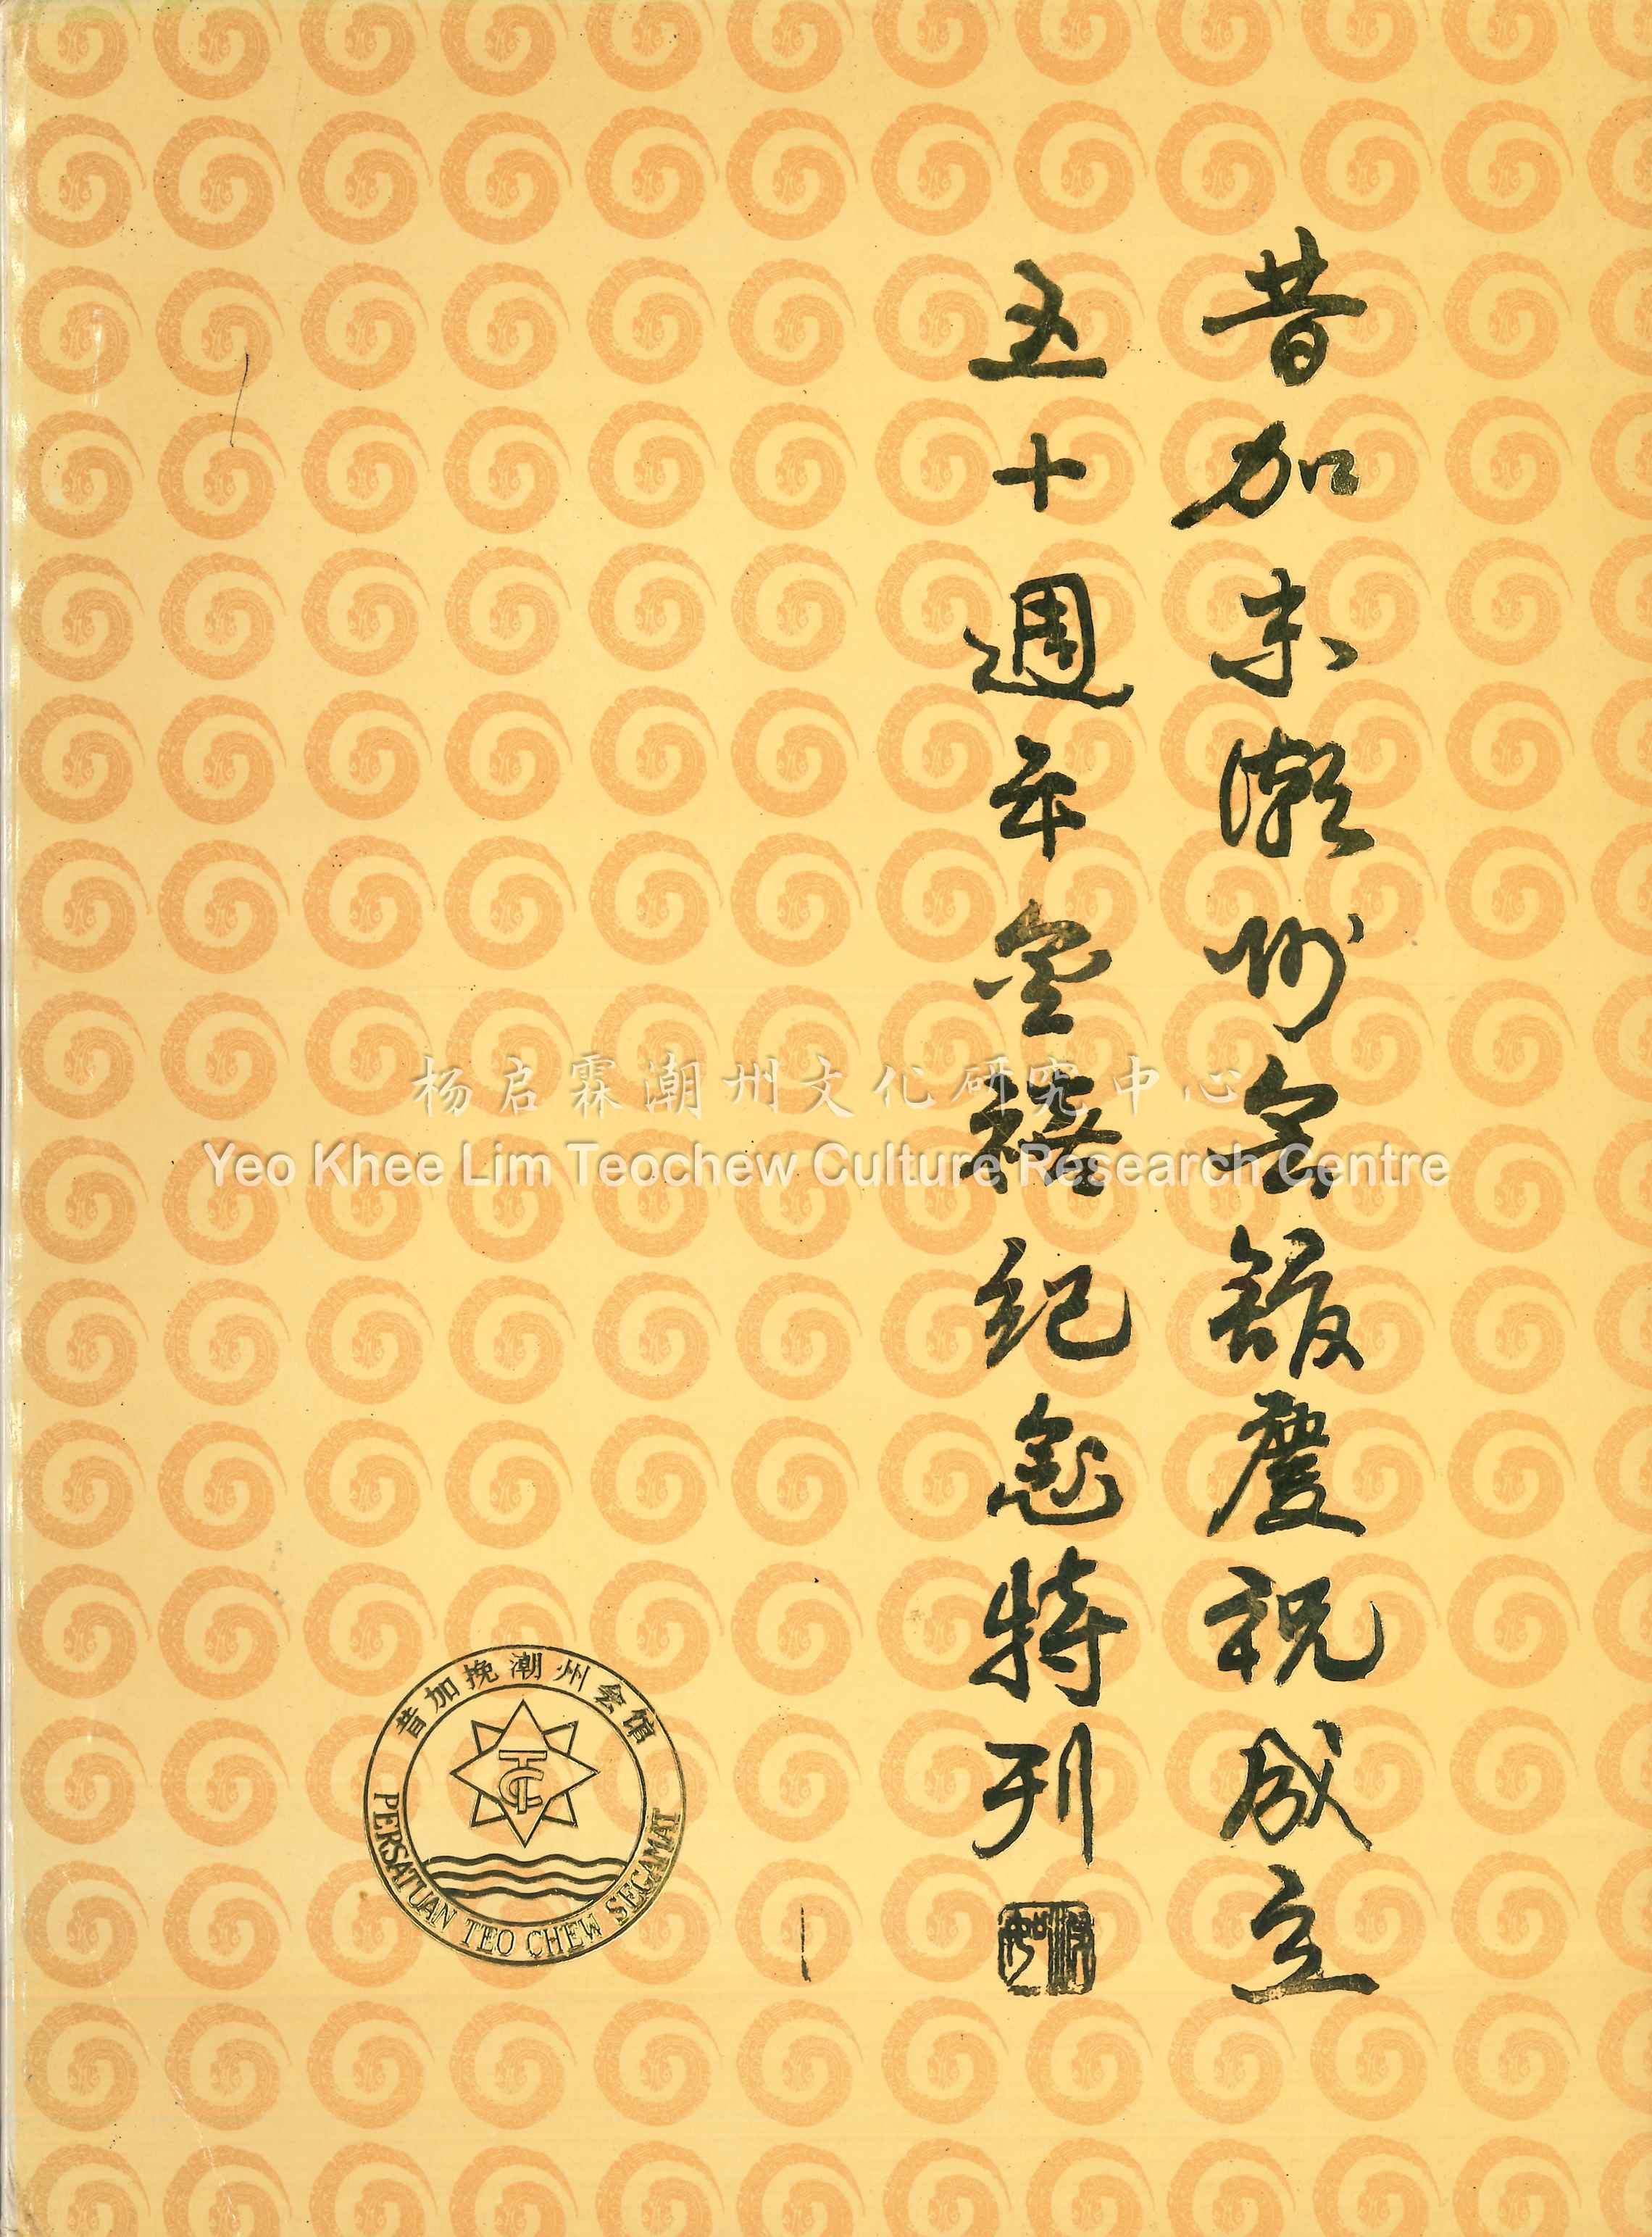 昔加末潮州会館慶祝成立
五十週年金禧紀念特刊
杨启霖潮州文化研究中心
Yeo Khee Lim Teochew Culture Research Centre
昔加挽潮州会馆
TC
PERSATUAN TEO CHEW SEGAMAT